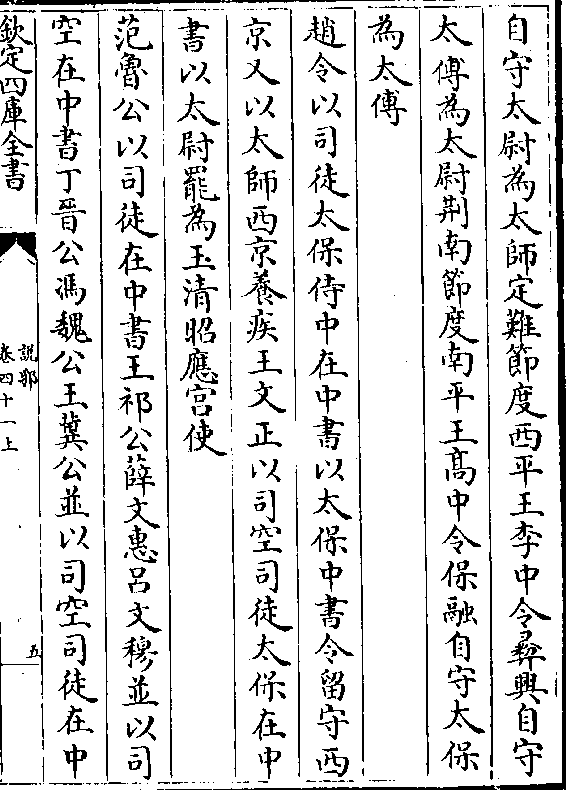 自守太尉為太師定難節度西平王李中令彞興自守
太傅為太尉荆南節度南平王髙中令保融自守太保
為太傅
趙令以司徒太保侍中在中書以太保中書令留守西
京又以太師西京養疾王文正以司空司徒太保在中
書以太尉罷為玉清昭應宫使
范魯公以司徒在中書王祁公薛文惠吕文穆並以司
空在中書丁晉公馮魏公王冀公並以司空司徒在中
欽定四庫全書
說郛
卷四十一上
五